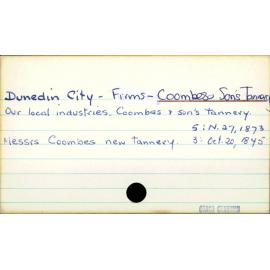 Dunedin City - Firms - Coombes & Son's Tannery
Our local industries. Coombes & son's tannery.
5: N. 27, 1873
Messrs Coombes new tannery. 3: Oct. 20, 1875